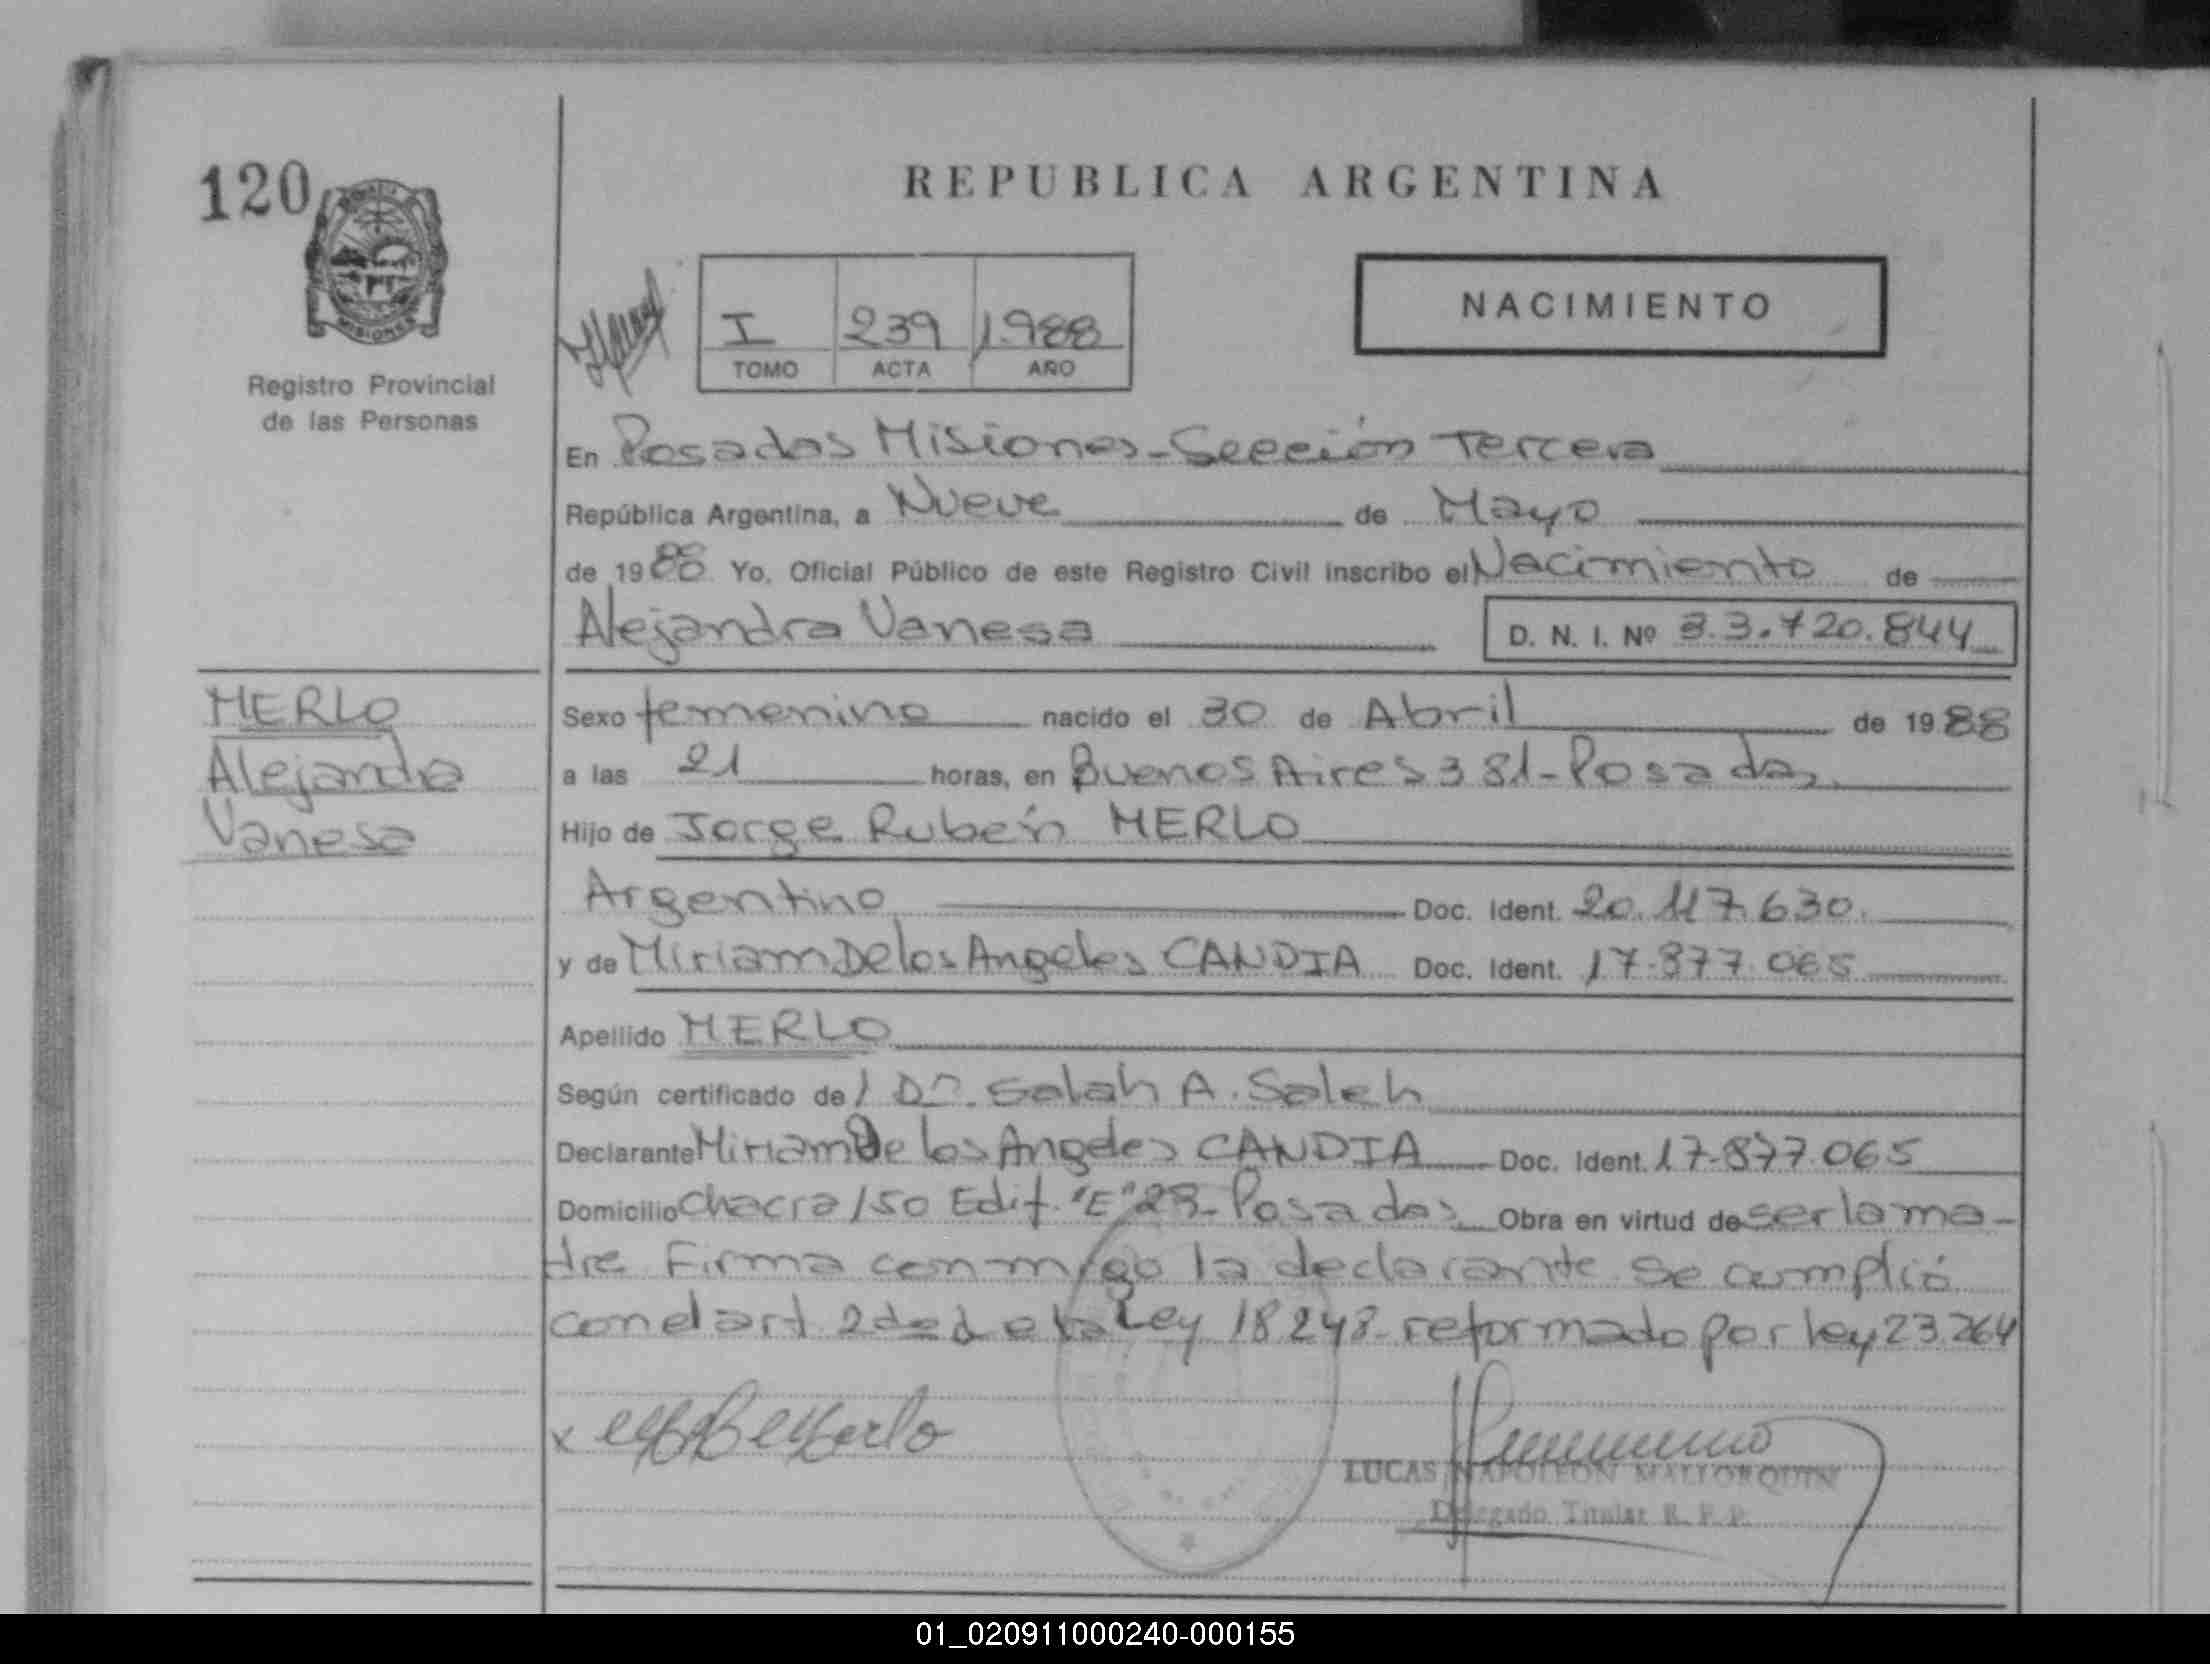 120
MISIONES
Registro Provincial
de las Personas
REPUBLICA ARGENTINA
I 239 1.988
TOMO ACTA AÑO
NACIMIENTO
En Posadas Misiones - Sección Tercera
República Argentina, a Nueve de Mayo
de 1988 Yo, Oficial Público de este Registro Civil inscribo el Nacimiento de
Alejandra Vanesa D. N. I. Nº 33.720.844
MERLO
Alejandra
Vanesa
Sexo femenino nacido el 30 de Abril de 1988
a las 21 horas, en Buenos Aires 381 - Posadas
Hijo de Jorge Rubén MERLO
Argentino Doc. Ident. 20.117.630.
y de Miriam De los Angeles CANDIA Doc. Ident. 17.877.065
Apellido MERLO
Según certificado de / Dr. Salah A. Saleh
Declarante Miriam De los Angeles CANDIA Doc. Ident. 17.877.065
Domicilio Chacra 150 Edif. "E" 23 - Posadas Obra en virtud de ser la ma-
dre Firma conmigo la declarante se cumplió
con el art 2 de la Ley 18248 - reformado por ley 23.264
LUCAS NAPOLEON MALLORQUIN
Delegado Titular R. P. P.
01_020911000240-000155